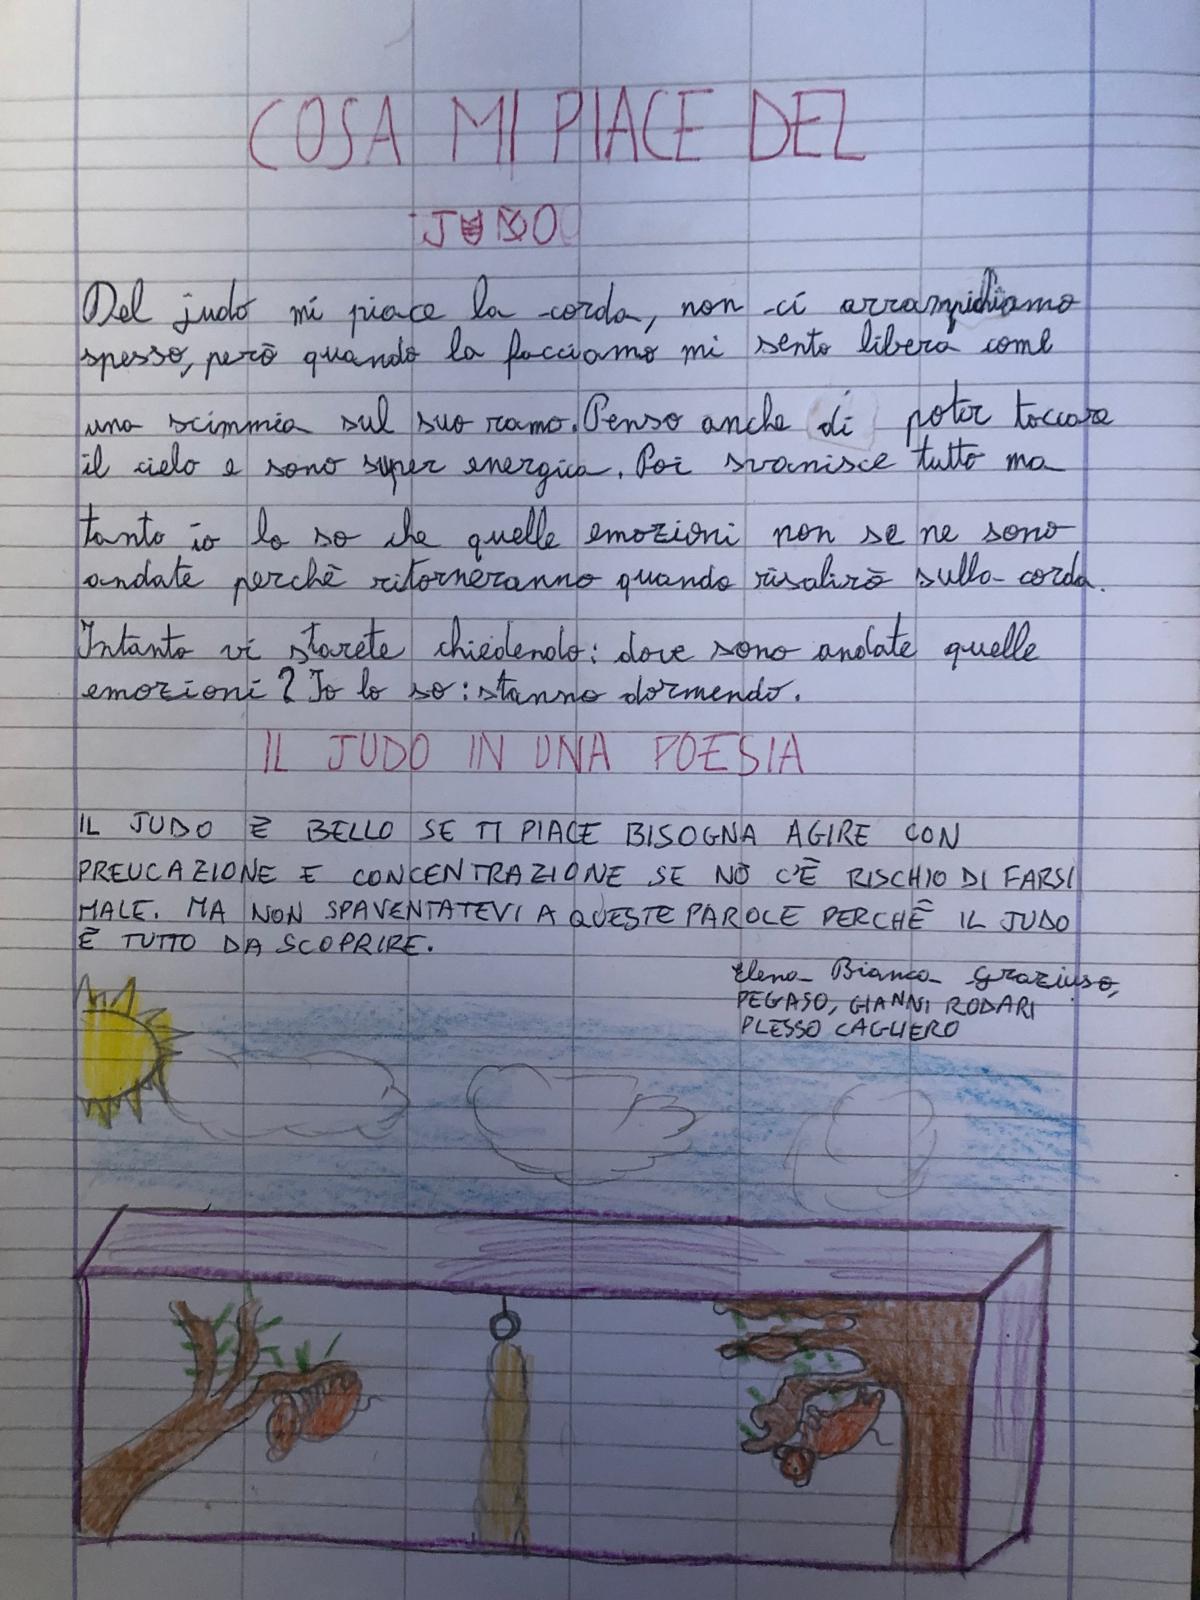 COSA MI PIACE DEL
JUDO
Del judo mi piace la corda, non ci arrampichiamo
spesso, però quando la facciamo mi sento libera come
una scimmia sul suo ramo. Penso anche di poter toccare
il cielo e sono super energica. Poi svanisce tutto ma
tanto io lo so che quelle emozioni non se ne sono
andate perchè ritorneranno quando risalirò sulla corda.
Intanto vi starete chiedendo: dove sono andate quelle
emozioni? Io lo so: stanno dormendo.
IL JUDO IN UNA POESIA
IL JUDO È BELLO SE TI PIACE BISOGNA AGIRE CON
PREUCAZIONE E CONCENTRAZIONE SE NÒ C'È RISCHIO DI FARSI
MALE. MA NON SPAVENTATEVI A QUESTE PAROLE PERCHÈ IL JUDO
È TUTTO DA SCOPRIRE.
Elena Bianca Graziuso,
PEGASO, GIANNI RODARI
PLESSO CAGLIERO